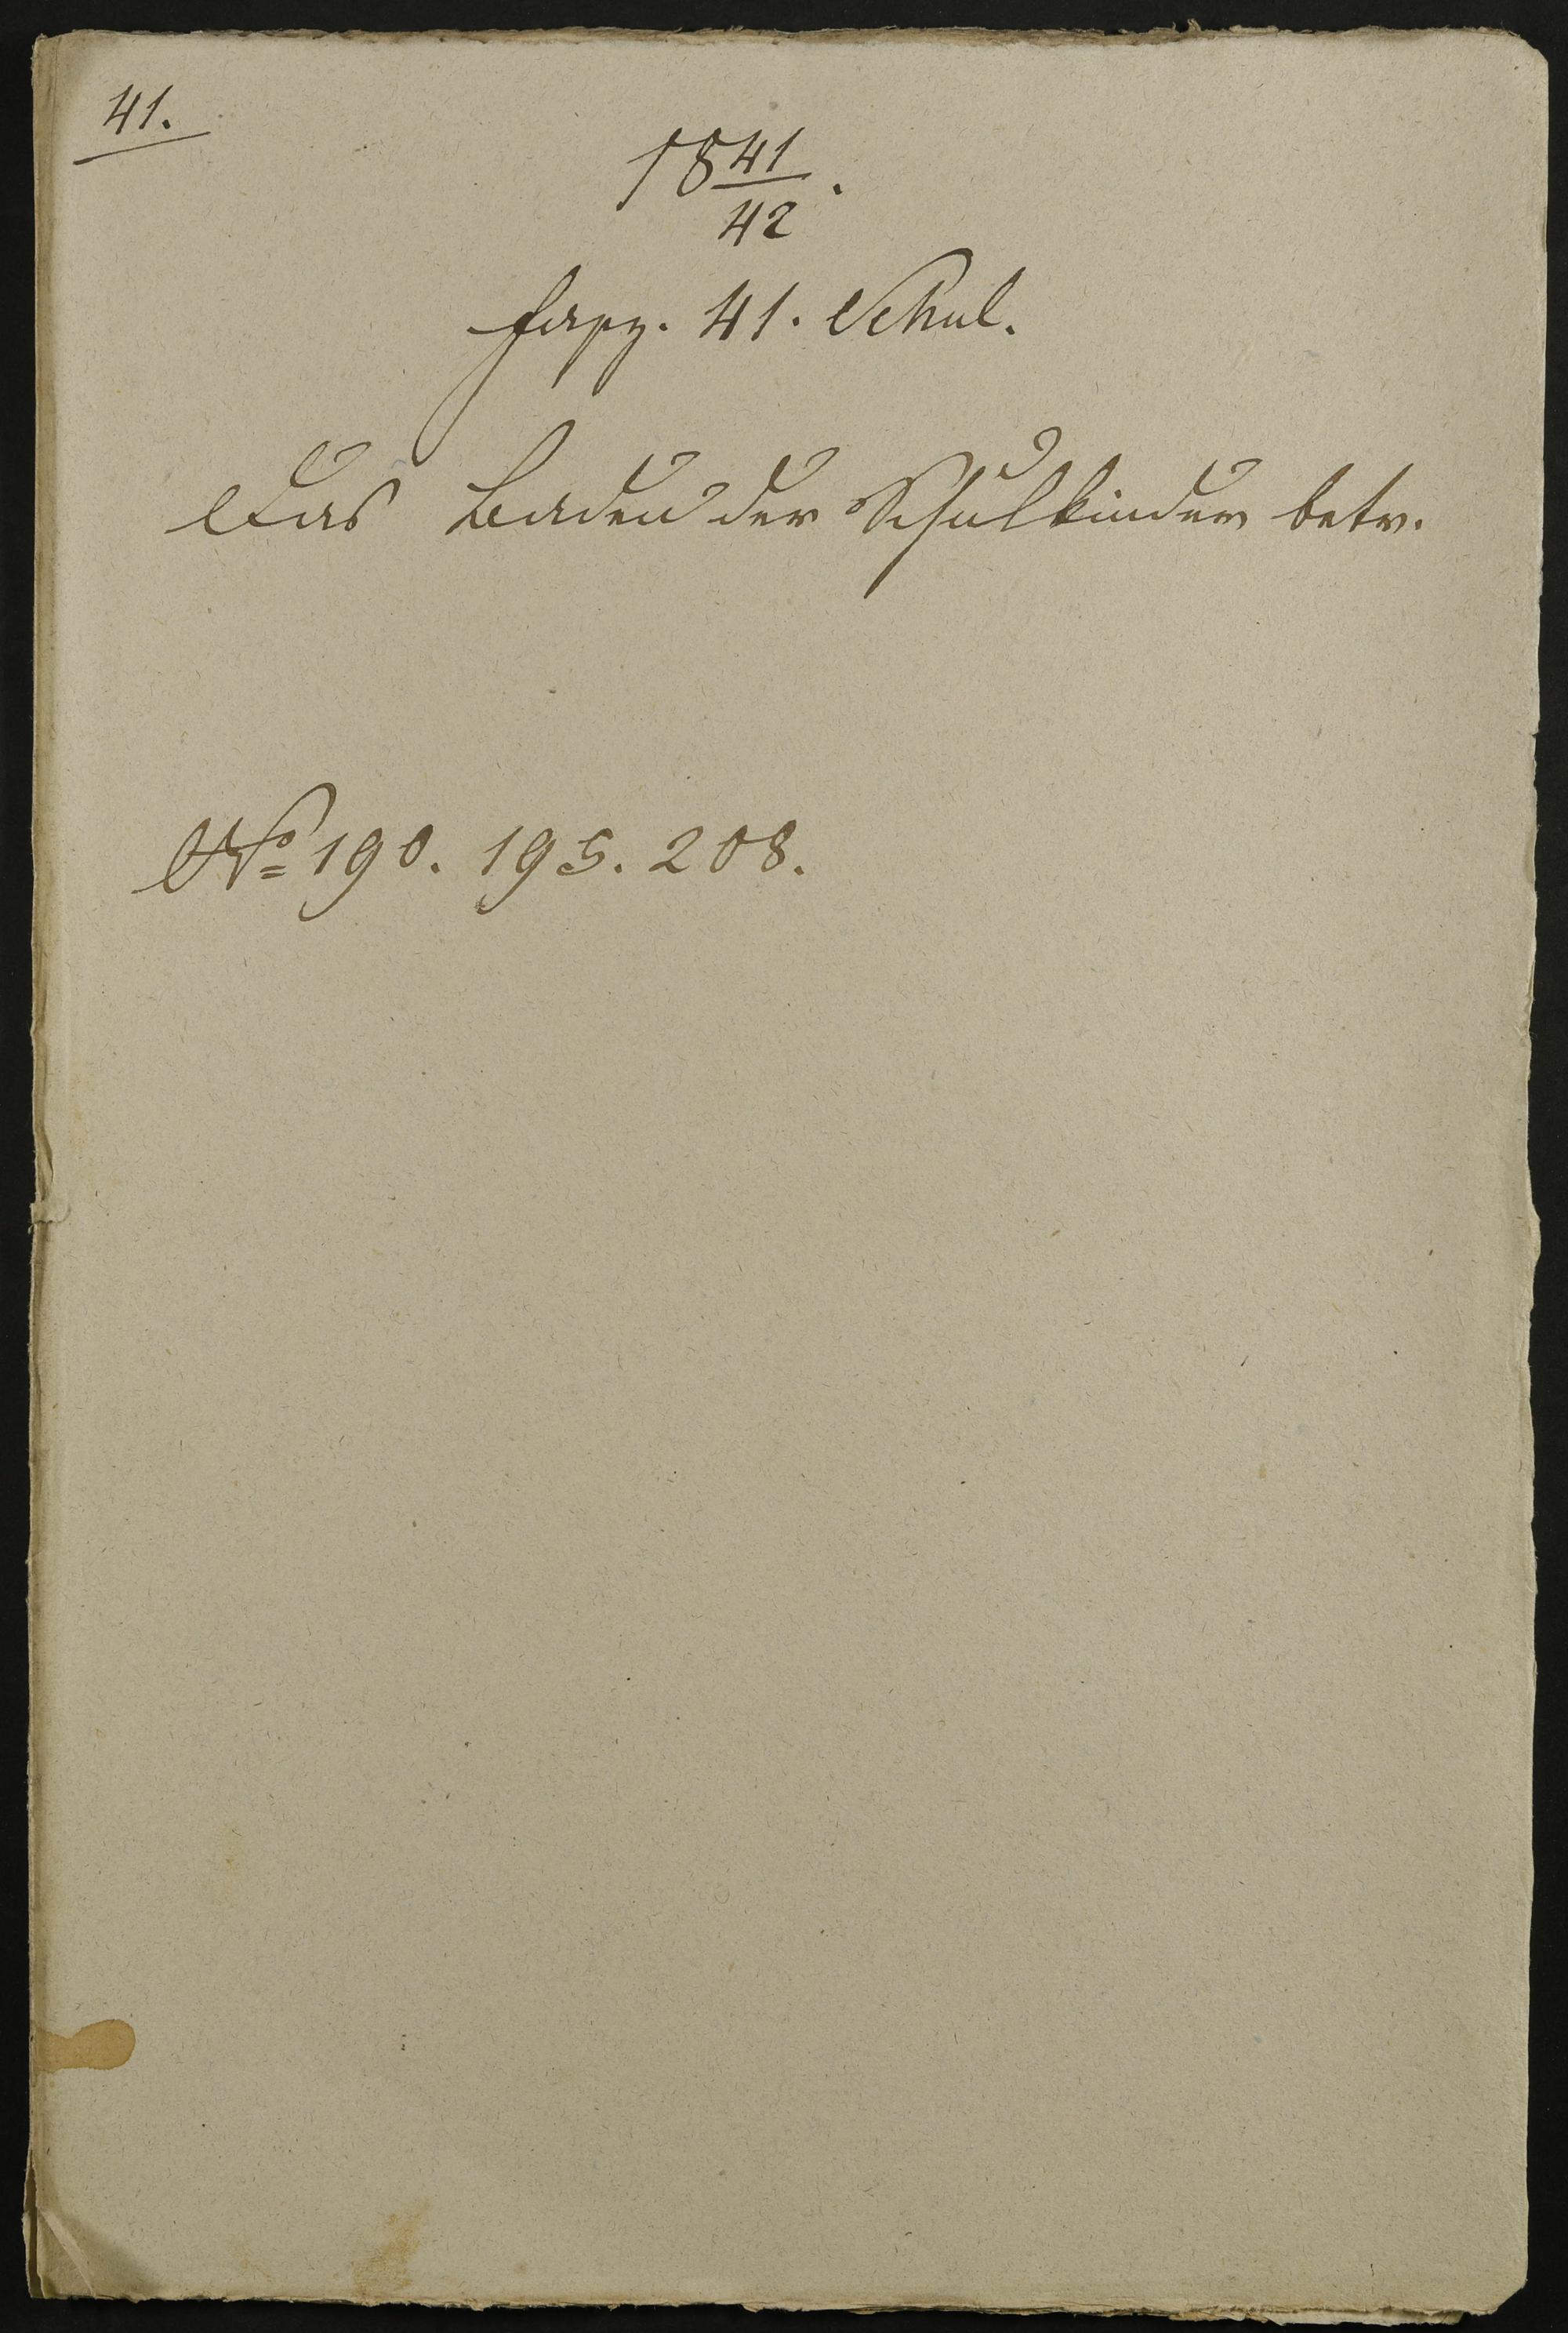 41.
18 41/42.
Fasz. 41. Schul.
Das Baden der Schulkinder betr.
No 190. 195. 208.